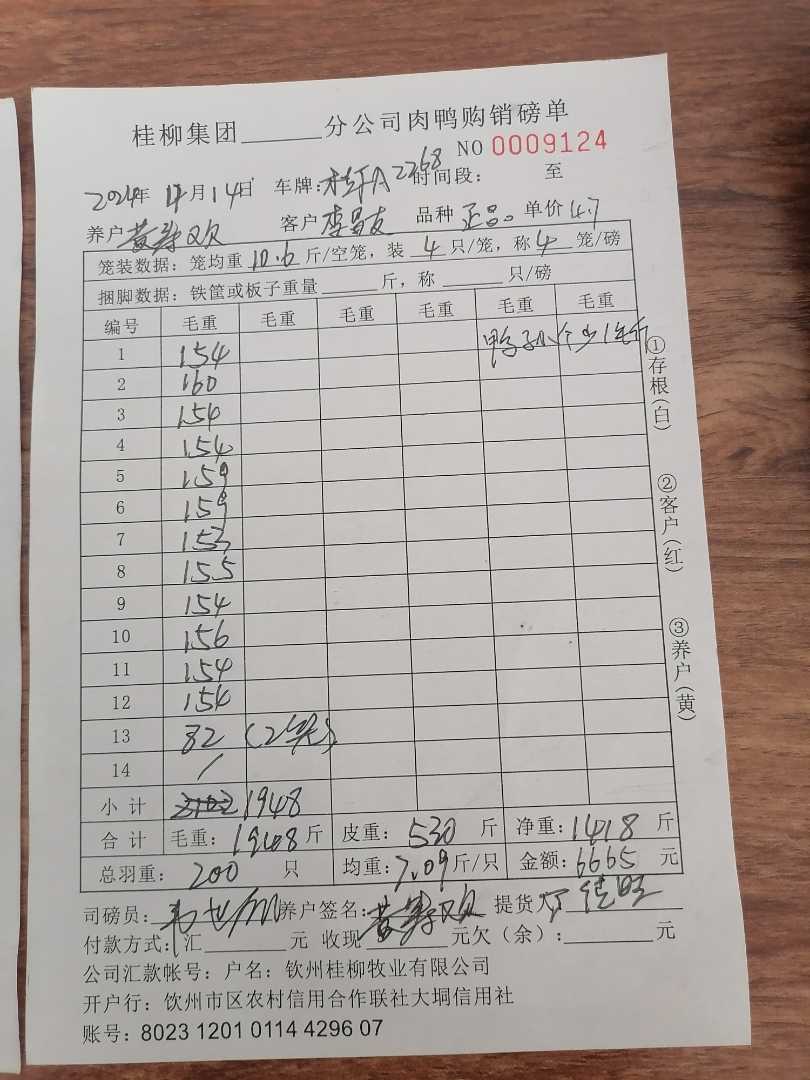 桂柳集团______分公司肉鸭购销磅单
NO 0009124
2024年 11月14日 车牌:桂A2268 时间段: 至
养户 黄寿欢 客户 李昌友 品种 正品。 单价 4.7
笼装数据:笼均重 10.6 斤/空笼,装 4 只/笼,称 4 笼/磅
捆脚数据:铁筐或板子重量______斤,称______只/磅
编号 毛重 毛重 毛重 毛重 毛重 毛重
1 154 鸭子小 个少1毛/斤
2 160
3 154
4 154
5 159
6 159
7 153
8 155
9 154
10 156
11 154
12 154
13 82 (2笼)
14 /
小 计 1948
合 计 毛重: 1948 斤 皮重: 530 斤 净重: 1418 斤
总羽重: 200 只 均重: 7.09 斤/只 金额: 6665 元
司磅员: 养户签名: 黄寿欢 提货人
付款方式:汇______元 收现______元欠(余):______元
公司汇款帐号:户名:钦州桂柳牧业有限公司
开户行:饮州市区农村信用合作联社大垌信用社
账号:8023 1201 0114 4296 07
①存根(白)
②客户(红)
③养户(黄)